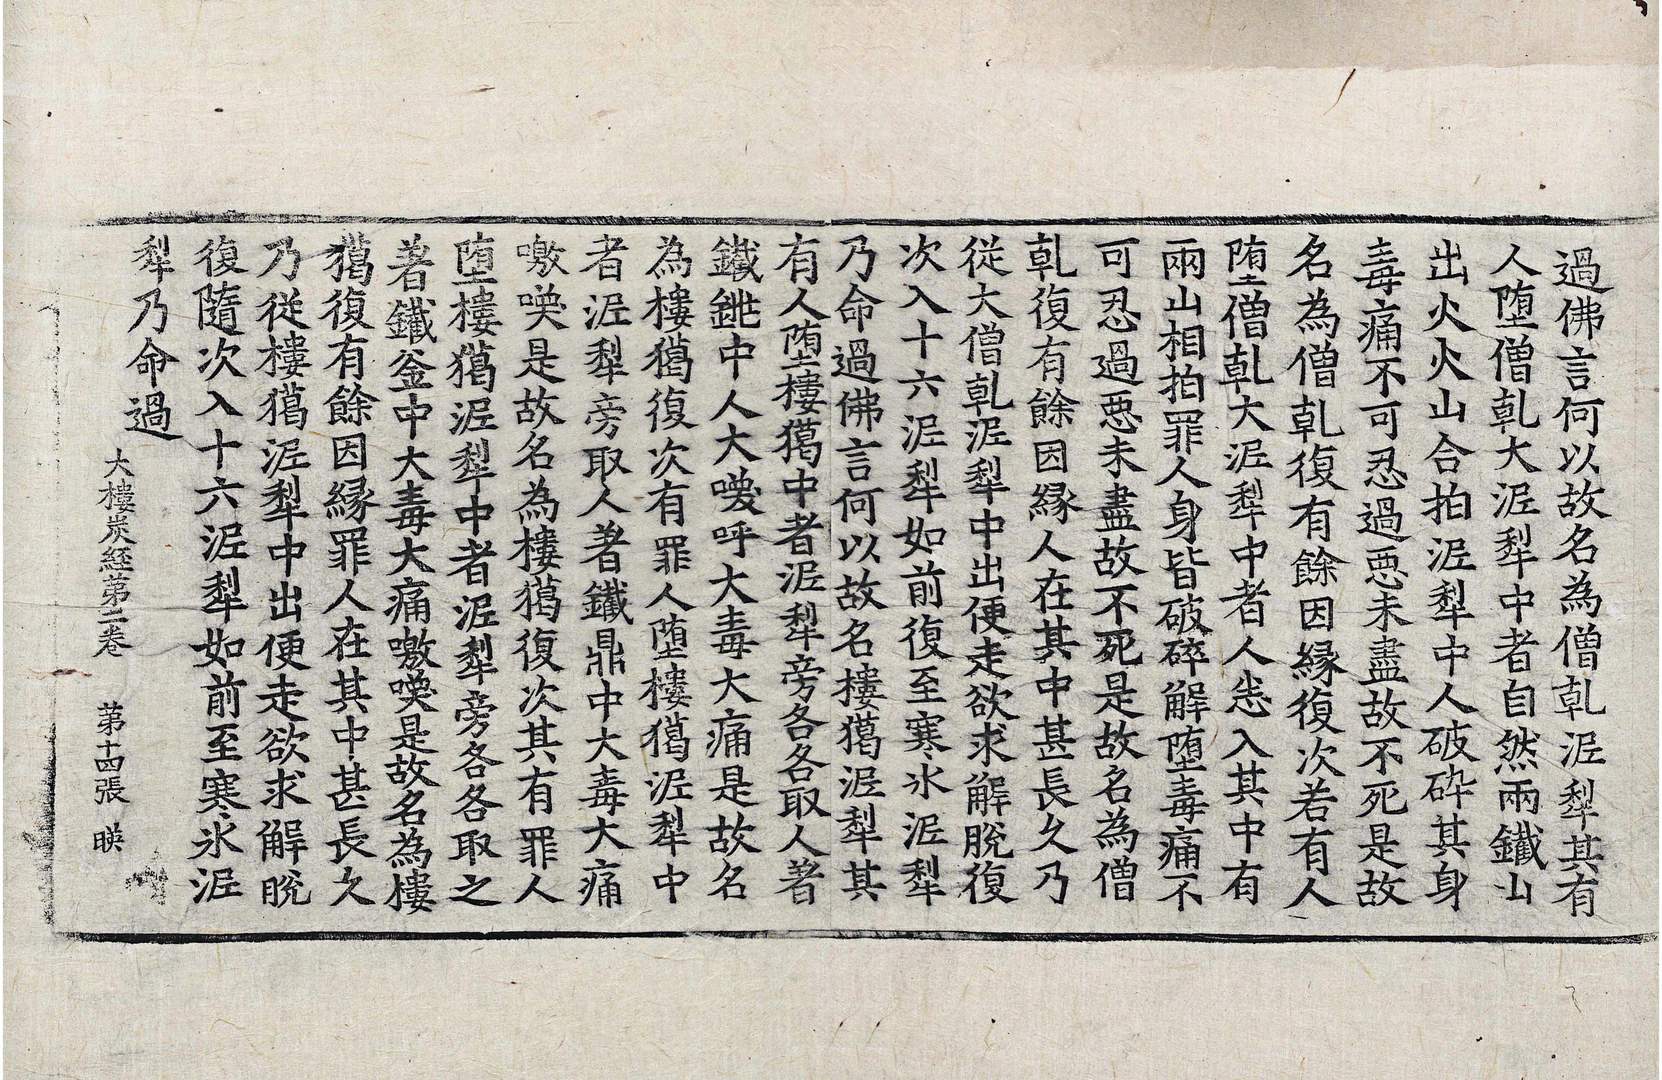 過佛言何以故名為僧乹泥犁其有
人墮僧乹大泥犁中者自然兩鐵山
出火火山合拍泥犁中人破碎其身
毒痛不可忍過惡未盡故不死是故
名為僧乹復有餘因緣復次若有人
墮僧乹大泥犁中者人恚入其中有
兩山相拍罪人身皆破碎解墮毒痛不
可忍過惡未盡故不死是故名為僧
乹復有餘因緣人在其中甚長久乃
從大僧乹泥犁中出便走欲求解脫復
次入十六泥犁如前復至寒氷泥犁
乃命過佛言何以故名樓獦泥犁其
有人墮樓獦中者泥犁旁各各取人著
鐵銚中人大喚呼大毒大痛是故名
為樓獦復次有罪人墮樓獦泥犁中
者泥犁旁取人著鐵鼎中大毒大痛
噭喚是故名為樓獦復次其有罪人
墮樓獦泥犁中者泥犁旁各各取之
著鐵釜中大毒大痛噭喚是故名為樓
獦復有餘因緣罪人在其中甚長久
乃從樓獦泥犁中出便走欲求解脫
復隨次入十六泥犁如前至寒氷泥
犁乃命過
大樓炭經第二卷 第十四張 暎